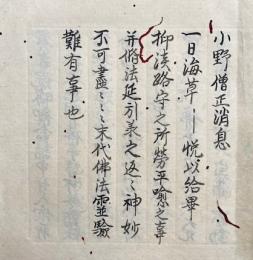 小野僧正消息
一日海草〡悦以給畢
抑淡路守之所勞平愈之事
并脩法延引義之返〻神妙
不可盡〻〻末代佛法靈驗
難有事也